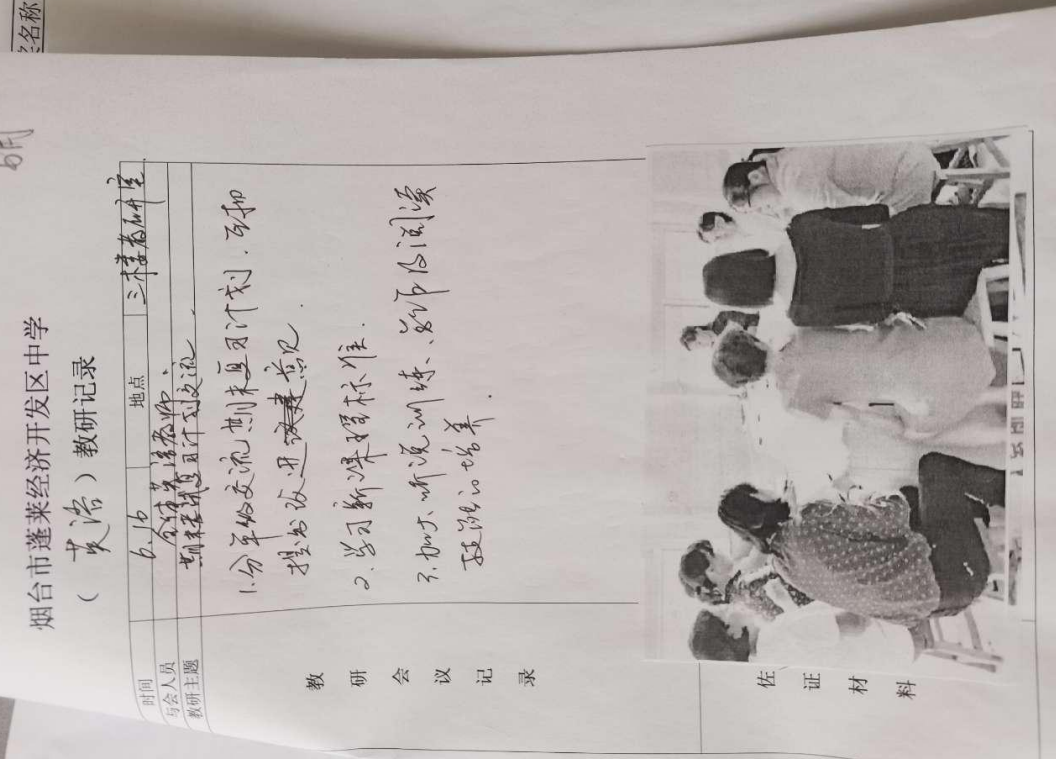 奖名称
6月
烟台市蓬莱经济开发区中学
（ 英语 ）教研记录
时间 6.16 地点 三楼教研室
与会人员 全体英语教师
教研主题 期末复习计划交流
教研会议记录
1.分年级交流期末复习计划.互相
提出改进建意见.
2.学习新课程标准.
3.加大听说训练、写作及阅读
技能的培养.
佐证材料